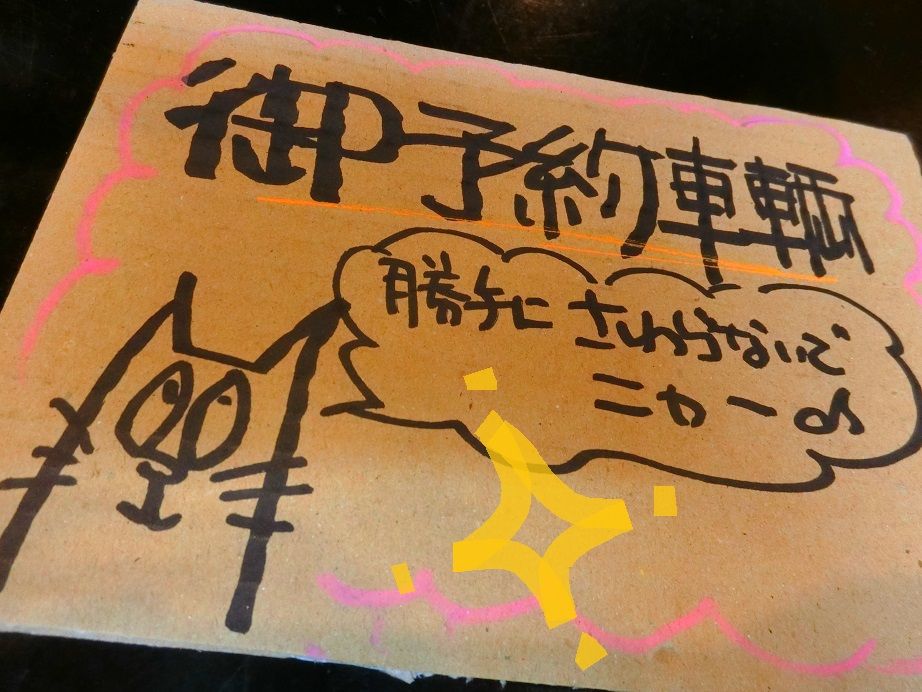 御予約車輌
勝手に さわらないで
ニャーの